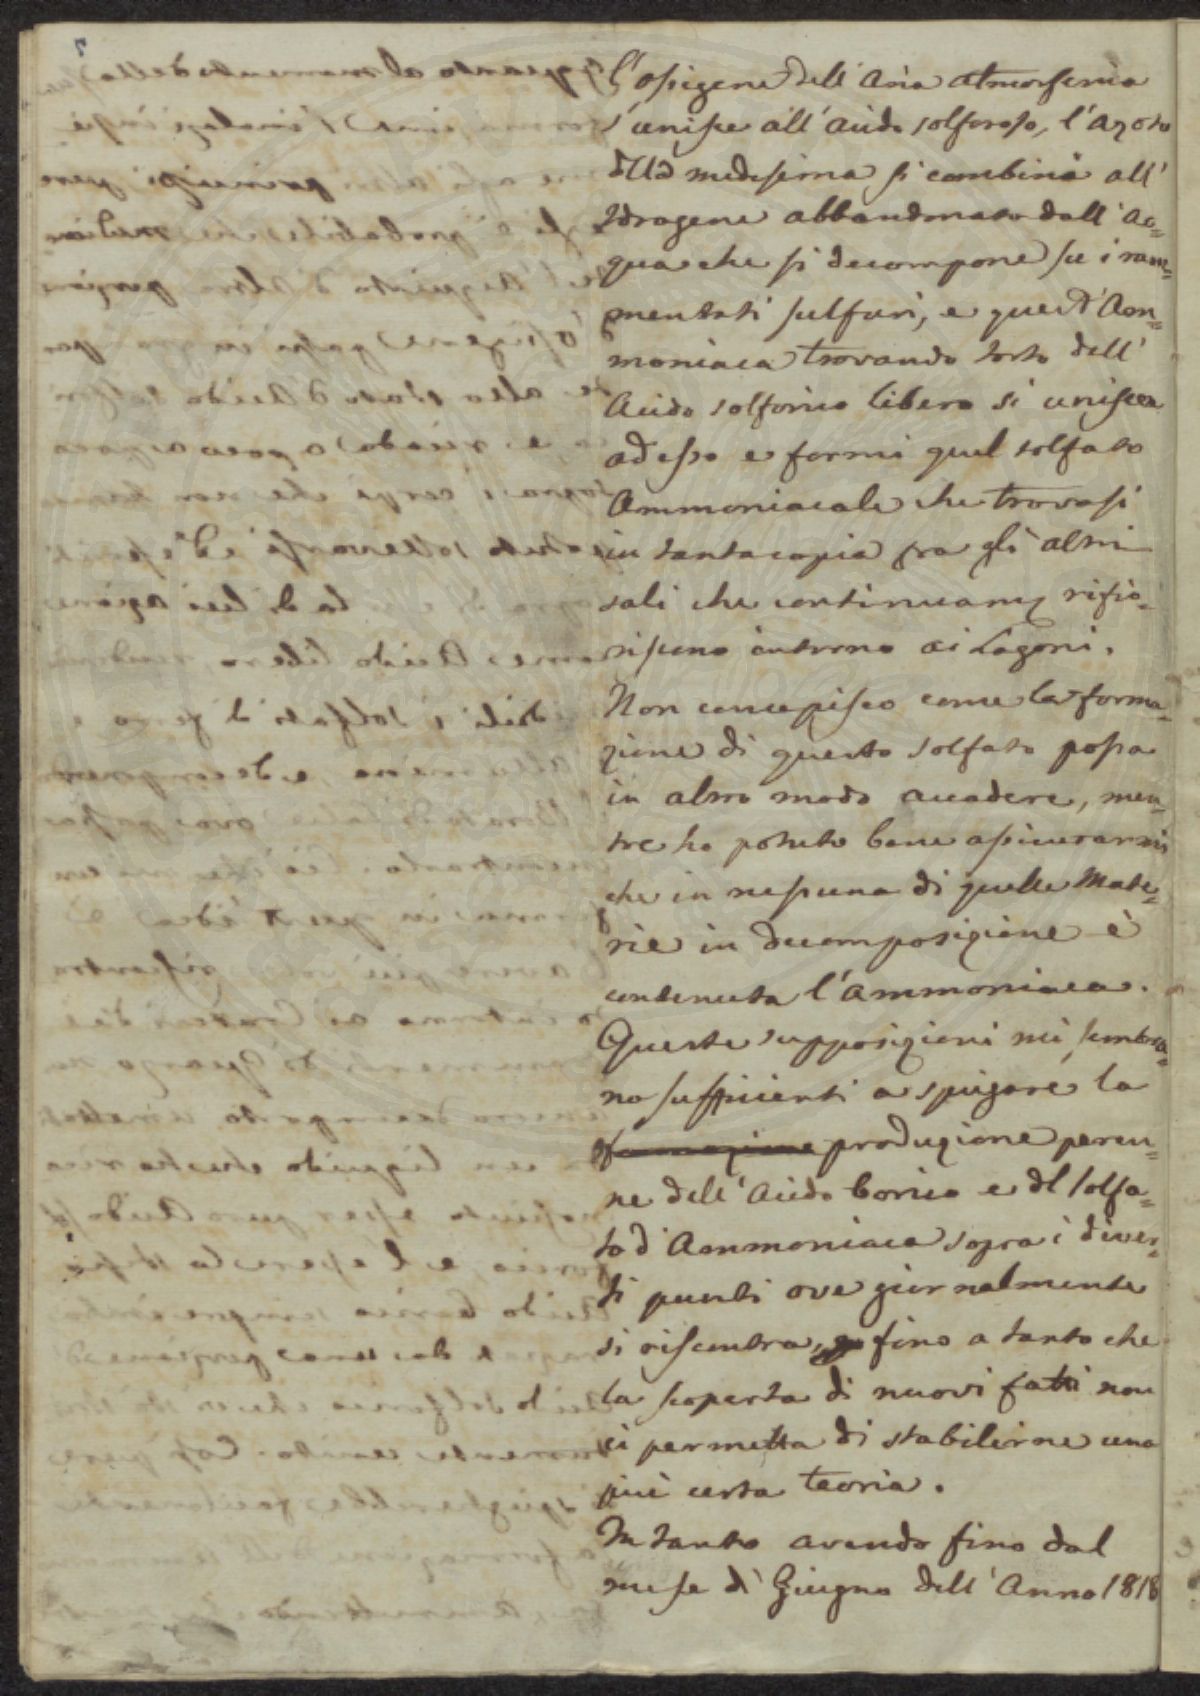 l'ossigene dell'Aria atmosferica
s'unisse all'Acido solforoso, l'Azoto
della medesima si combini all'
Idrogene abbandonato dall'Ac=
qua che si decompone su i ram=
mentati sulfuri, e quest'Am=
moniaca trovando tosto dell'
Acido solforico libero si unisca
ad esso e formi quel solfato
Ammoniacale che trovasi
in tanta copia fra gli altri
sali che continuam.e rifio=
riscono intorno ai Lagoni.
Non concepisco come la forma=
zione di questo solfato possa
in altro modo accadere, men=
tre ho potuto bene assicurarmi
che in nessuna di quelle Mate=
rie in decomposizione è
contenuta l'Ammoniaca.
Queste supposizioni mi sembra=
no sufficienti a spiegare la
formazione produzione peren=
ne dell'Acido borico e del solfa=
to d'Ammoniaca sopra i diver=
si punti ove giornalmente
si riscontra, fino a tanto che
la scoperta di nuovi fatti non
ci permetta di stabilirne una
più certa teoria.
In tanto avendo fino dal
mese di Giugno dell'Anno 1818